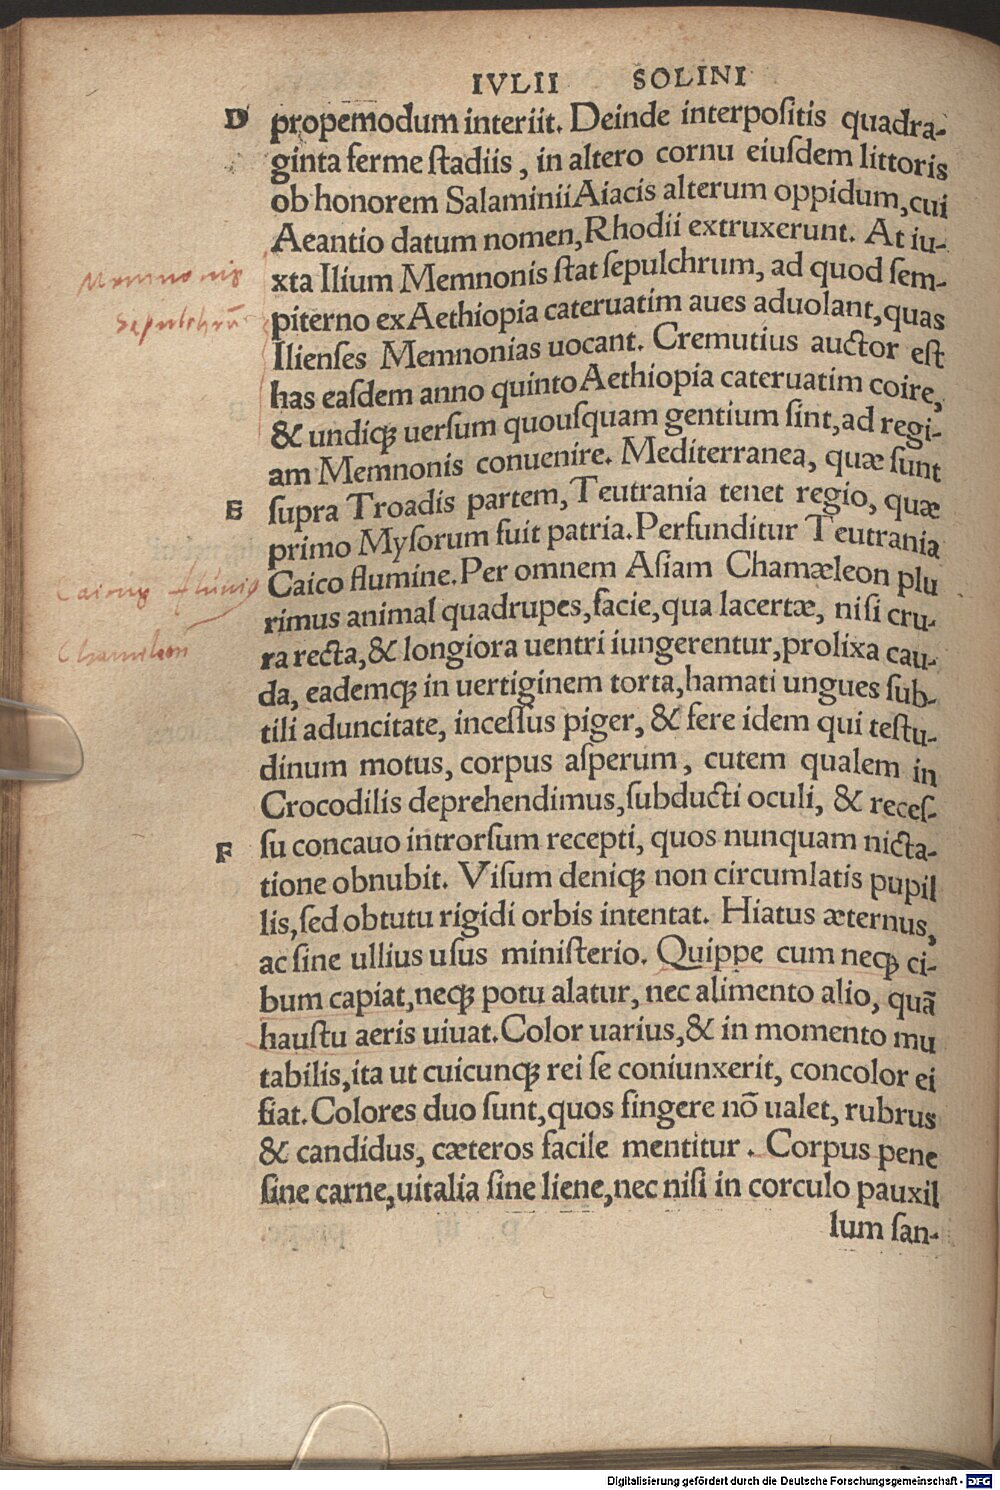 IVLII SOLINI
D propemodum interiit. Deinde interpoſitis quadra-
ginta ferme ſtadiis, in altero cornu eiuſdem littoris
ob honorem Salaminii Aiacis alterum oppidum, cui
Aeantio datum nomen, Rhodii extruxerunt. At iu-
Memnonis
xta Ilium Memnonis ſtat ſepulchrum, ad quod ſem-
Sepulchrū
piterno ex Aethiopia cateruatim aues aduolant, quas
Ilienſes Memnonias uocant. Cremutius auctor eſt
has eaſdem anno quinto Aethiopia cateruatim coire,
& undiqꝫ uerſum quouſquam gentium ſint, ad regi-
am Memnonis conuenire. Mediterranea, quæ ſunt
E ſupra Troadis partem, Teutrania tenet regio, quæ
primo Myſorum fuit patria. Perfunditur Teutrania
Caicus fluuiꝰ
Caico flumine. Per omnem Aſiam Chamæleon plu
rimus animal quadrupes, facie, qua lacertæ, niſi cru-
Chamileon
ra recta, & longiora uentri iungerentur, prolixa cau-
da, eademqꝫ in uertiginem torta, hamati ungues ſub-
tili aduncitate, inceſſus piger, & fere idem qui teſtu-
dinum motus, corpus aſperum, cutem qualem in
Crocodilis deprehendimus, ſubducti oculi, & receſ-
F ſu concauo introrſum recepti, quos nunquam nicta-
tione obnubit. Viſum deniqꝫ non circumlatis pupil
lis, ſed obtutu rigidi orbis intentat. Hiatus æternus,
ac ſine ullius uſus miniſterio. Quippe cum neqꝫ ci-
bum capiat, neqꝫ potu alatur, nec alimento alio, quā
hauſtu aeris uiuat. Color uarius, & in momento mu
tabilis, ita ut cuicunqꝫ rei ſe coniunxerit, concolor ei
fiat. Colores duo ſunt, quos fingere nō ualet, rubrus
& candidus, cæteros facile mentitur. Corpus pene
ſine carne, uitalia ſine liene, nec niſi in corculo pauxil
lum ſan-
Digitalisierung gefördert durch die Deutsche Forschungsgemeinschaft - DFG